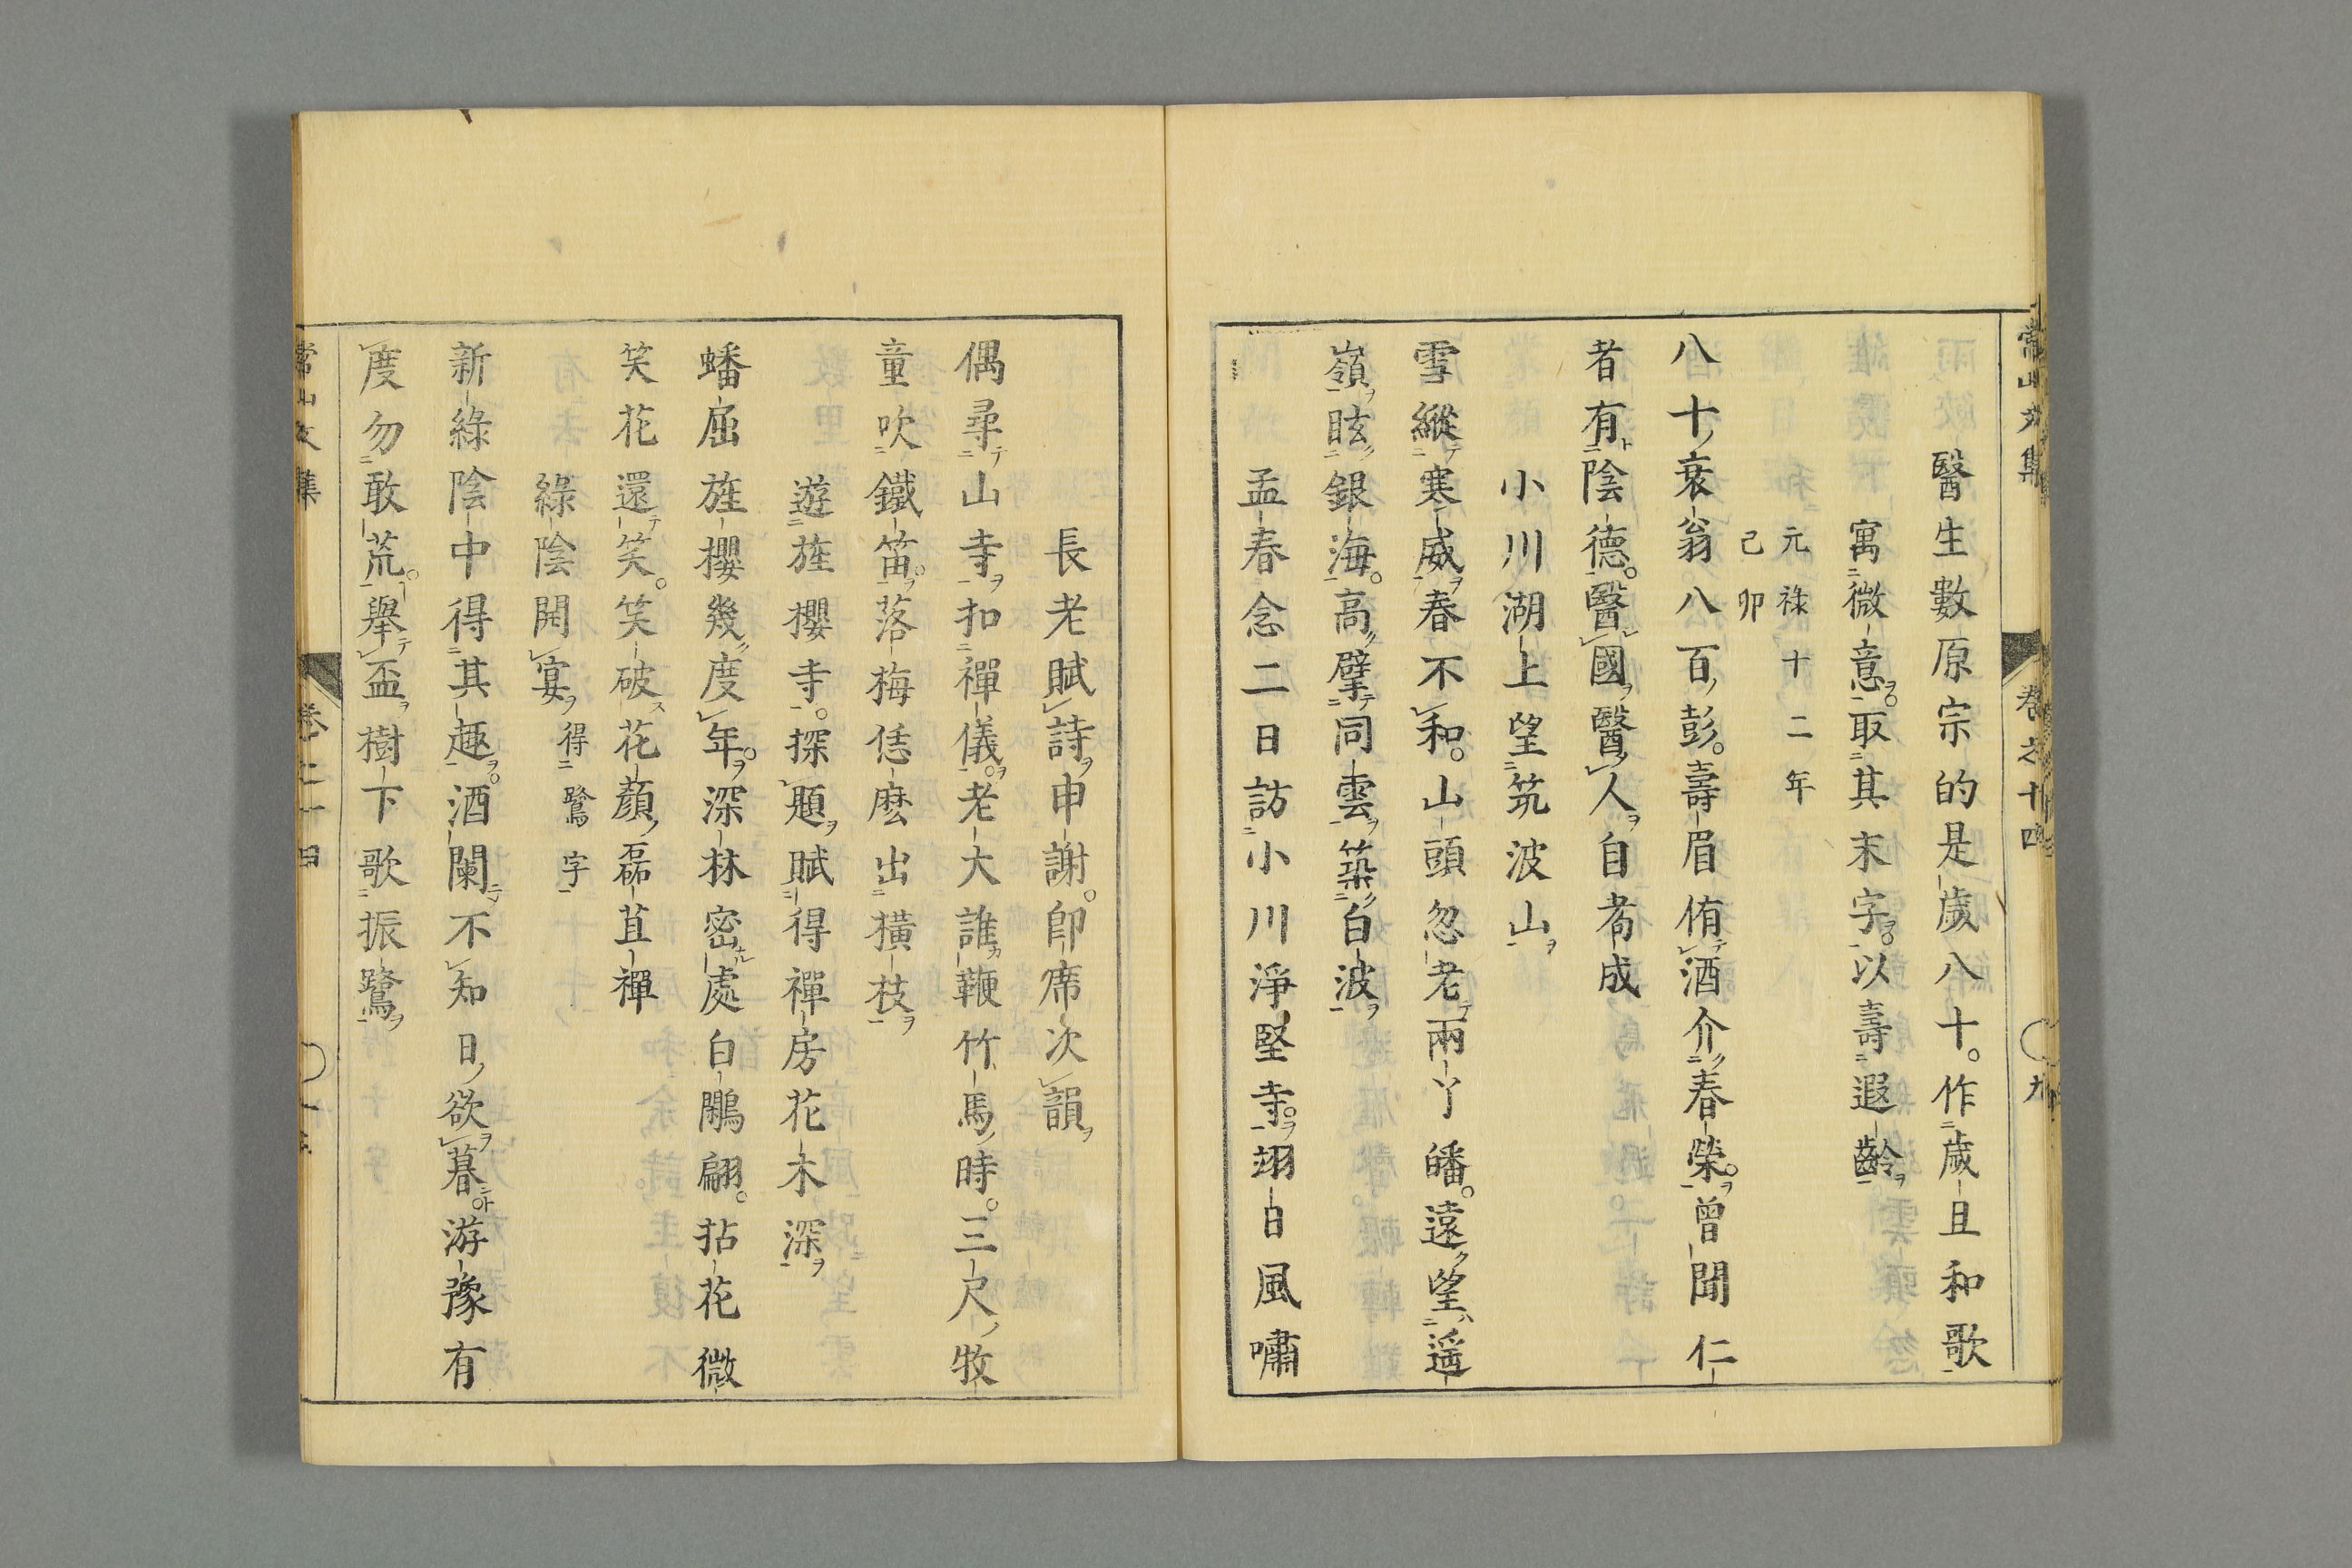 常山文集 卷之十四 九
醫生數原宗的是歲八十作歲旦和歌
寓微意取其末字以壽遐齡
元祿十二年
己卯
八十衰翁八百彭壽眉侑酒介春榮曾聞仁
者有陰德醫國醫人自耇成
小川湖上望筑波山
雪縱寒威春不和山頭忽老兩丫皤遠望遥
嶺眩銀海高擘同雲築白波
孟春念二日訪小川淨堅寺翊日風嘯
長老賦詩申謝卽席次韻
偶尋山寺扣禪儀老大誰鞭竹馬時三尺牧
童吹鐵笛落梅恁麽出橫枝
遊旌櫻寺探題賦得禪房花木深
蟠屈旌櫻幾度年深林密處白鷴翩拈花微
笑花還笑笑破花顏磊苴禪
綠陰開宴得鷺字
新綠陰中得其趣酒闌不知日欲暮游豫有
度勿敢荒擧盃樹下歌振鷺
常山文集